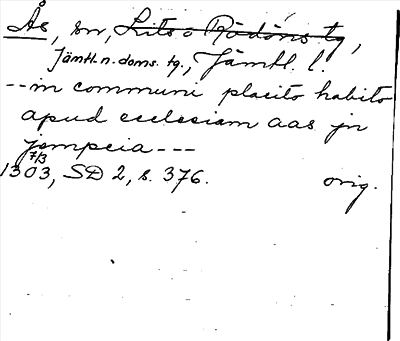 Ås, sn, Lits o Rödöns tg,
Jämtl. n. doms. tg., Jämtl. l.
-- in communi placito habito
apud ecclesiam aas jn
jempcia ---
7/3
1303, SD 2, s. 376. orig.